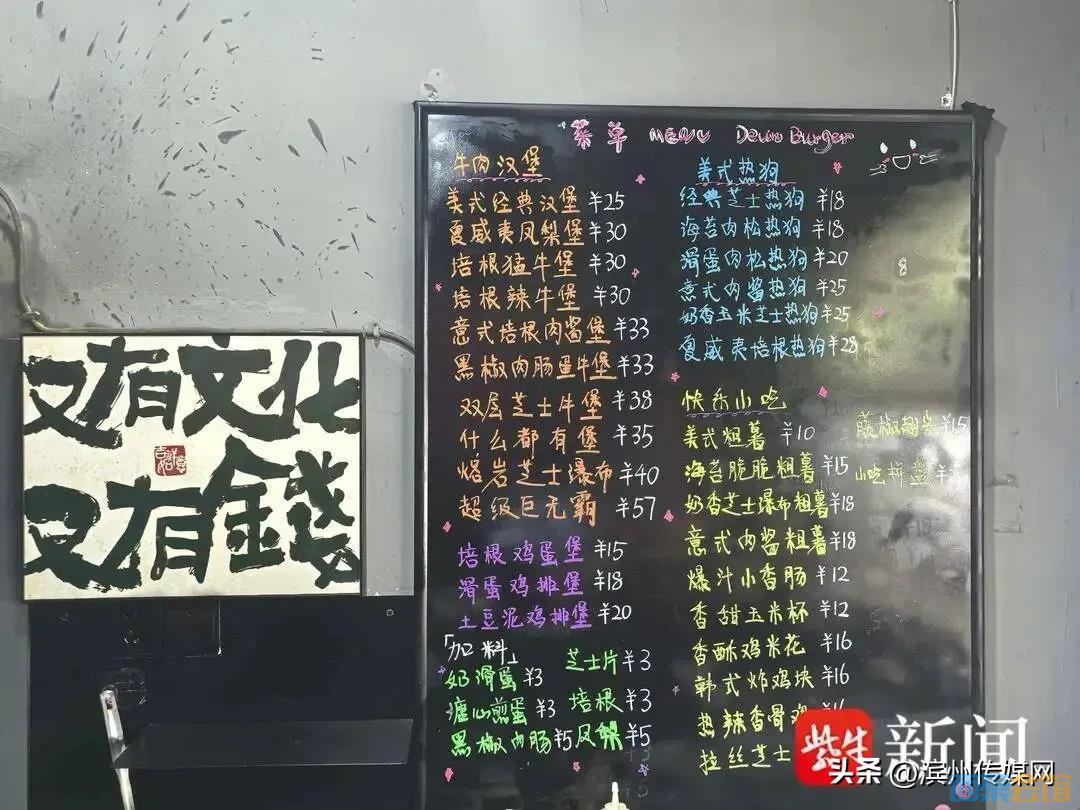 菜单 MENU Down Burger
牛肉汉堡
美式经典汉堡 ¥25
夏威夷凤梨堡 ¥30
培根猛牛堡 ¥30
培根辣牛堡 ¥30
意式培根肉酱堡 ¥33
黑椒肉肠蛋牛堡 ¥33
双层芝士牛堡 ¥38
什么都有堡 ¥35
熔岩芝士瀑布 ¥40
超级巨无霸 ¥57
培根鸡蛋堡 ¥15
滑蛋鸡排堡 ¥18
土豆泥鸡排堡 ¥20
「加料」
奶滑蛋 ¥3 芝士片 ¥3
溏心煎蛋 ¥3 培根 ¥3
黑椒肉肠 ¥5 凤梨 ¥5
美式热狗
经典芝士热狗 ¥18
海苔肉松热狗 ¥18
滑蛋肉松热狗 ¥20
意式肉酱热狗 ¥25
奶香玉米芝士热狗 ¥25
夏威夷培根热狗 ¥28
快乐小吃
美式粗薯 ¥10
海苔脆脆粗薯 ¥15
奶香芝士瀑布粗薯 ¥18
意式肉酱粗薯 ¥18
爆汁小香肠 ¥12
香甜玉米杯 ¥12
香酥鸡米花 ¥16
韩式炸鸡块 ¥16
热辣香骨鸡
拉丝芝士
藤椒翅尖 ¥15
小吃拼盘
又有文化
吉祥如意
又有錢
紫牛新闻
头条 @滨州传媒网